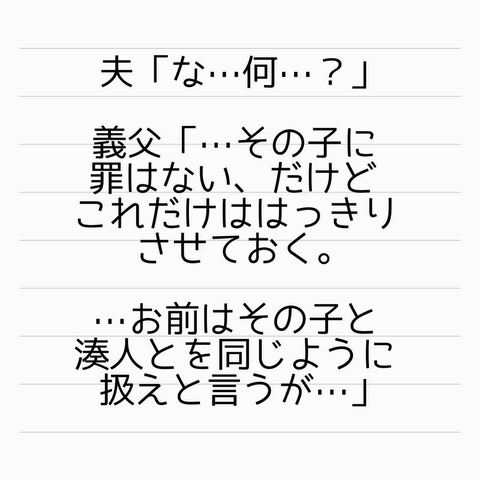 夫「な…何…？」
義父「…その子に
罪はない、だけど
これだけははっきり
させておく。
…お前はその子と
湊人とを同じように
扱えと言うが…」